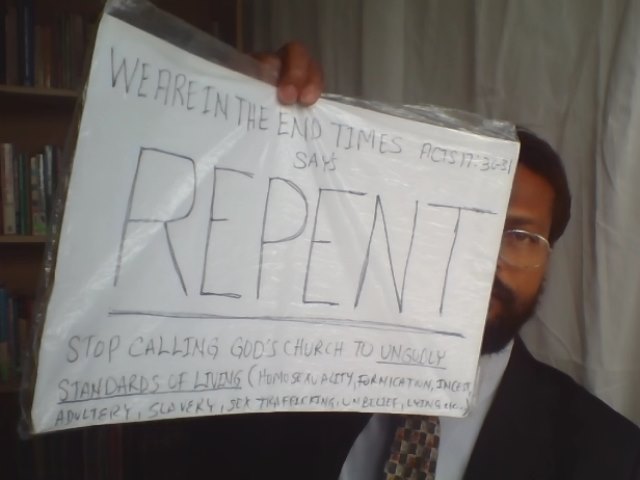 WE ARE IN THE END TIMES ACTS 17:30-31
SAYS
REPENT
STOP CALLING GOD'S CHURCH TO UNGODLY
STANDARDS OF LIVING (HOMOSEXUALITY, FORNICATION, INCEST,
ADULTERY, SLAVERY, SEX TRAFFICKING, UNBELIEF, LYING etc.)